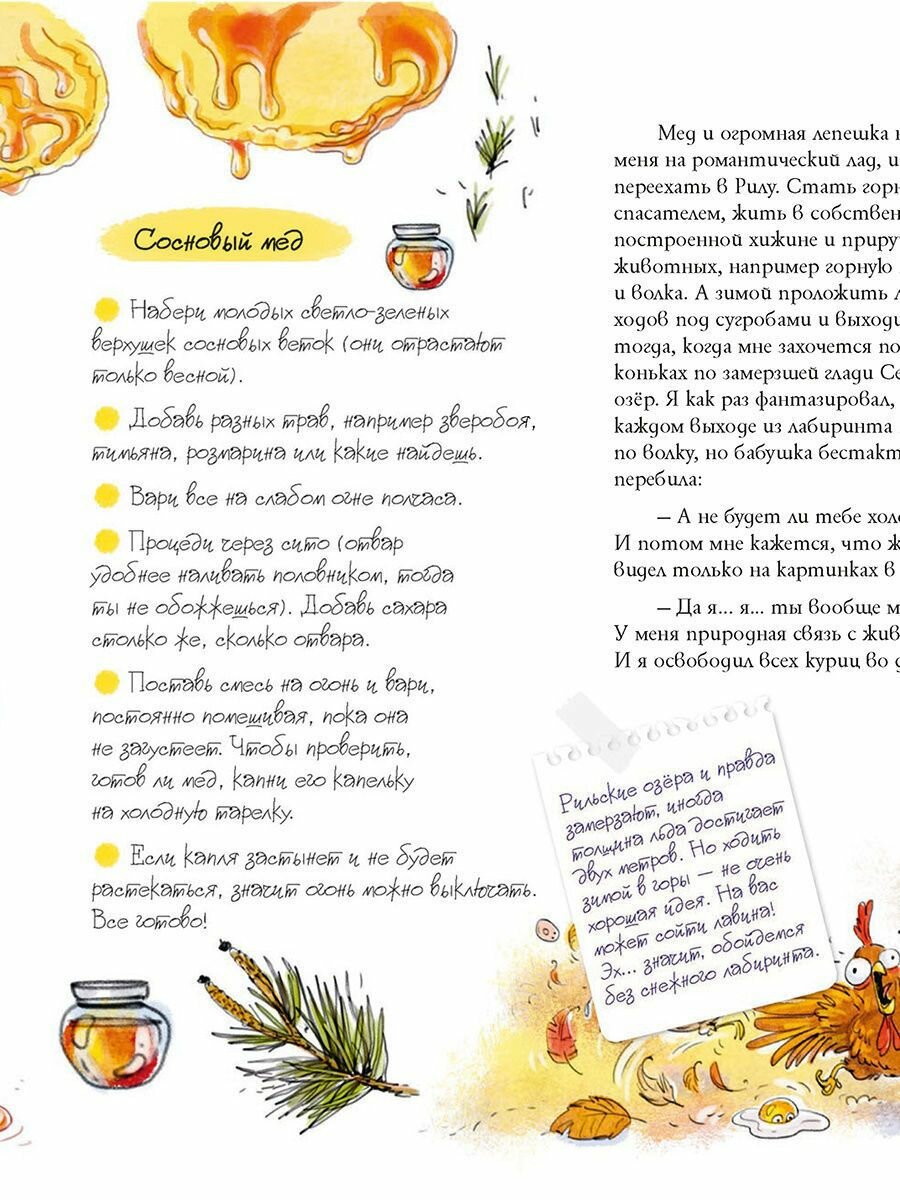 Сосновый мед
Набери молодых светло-зеленых
верхушек сосновых веток (они отрастают
только весной).
Добавь разных трав, например зверобоя,
тимьяна, розмарина или какие найдешь.
Вари все на слабом огне полчаса.
Процеди через сито (отвар
удобнее наливать половником, тогда
ты не обожжешься). Добавь сахара
столько же, сколько отвара.
Поставь смесь на огонь и вари,
постоянно помешивая, пока она
не загустеет. Чтобы проверить,
готов ли мед, капни его капельку
на холодную тарелку.
Если капля застынет и не будет
растекаться, значит огонь можно выключать.
Все готово!
Мед и огромная лепешка
меня на романтический лад, и
переехать в Рилу. Стать горн
спасателем, жить в собствен
построенной хижине и приру
животных, например горную
и волка. А зимой проложить
ходов под сугробами и выходи
тогда, когда мне захочется по
коньках по замерзшей глади Се
озёр. Я как раз фантазировал,
каждом выходе из лабиринта
по волку, но бабушка бестакт
перебила:
— А не будет ли тебе холо
И потом мне кажется, что ж
видел только на картинках в
— Да я... я... ты вообще м
У меня природная связь с жив
И я освободил всех куриц во д
Рильские озёра и правда
замерзают, иногда
толщина льда достигает
двух метров. Но ходить
зимой в горы — не очень
хорошая идея. На вас
может сойти лавина!
Эх... значит, обойдемся
без снежного лабиринта.